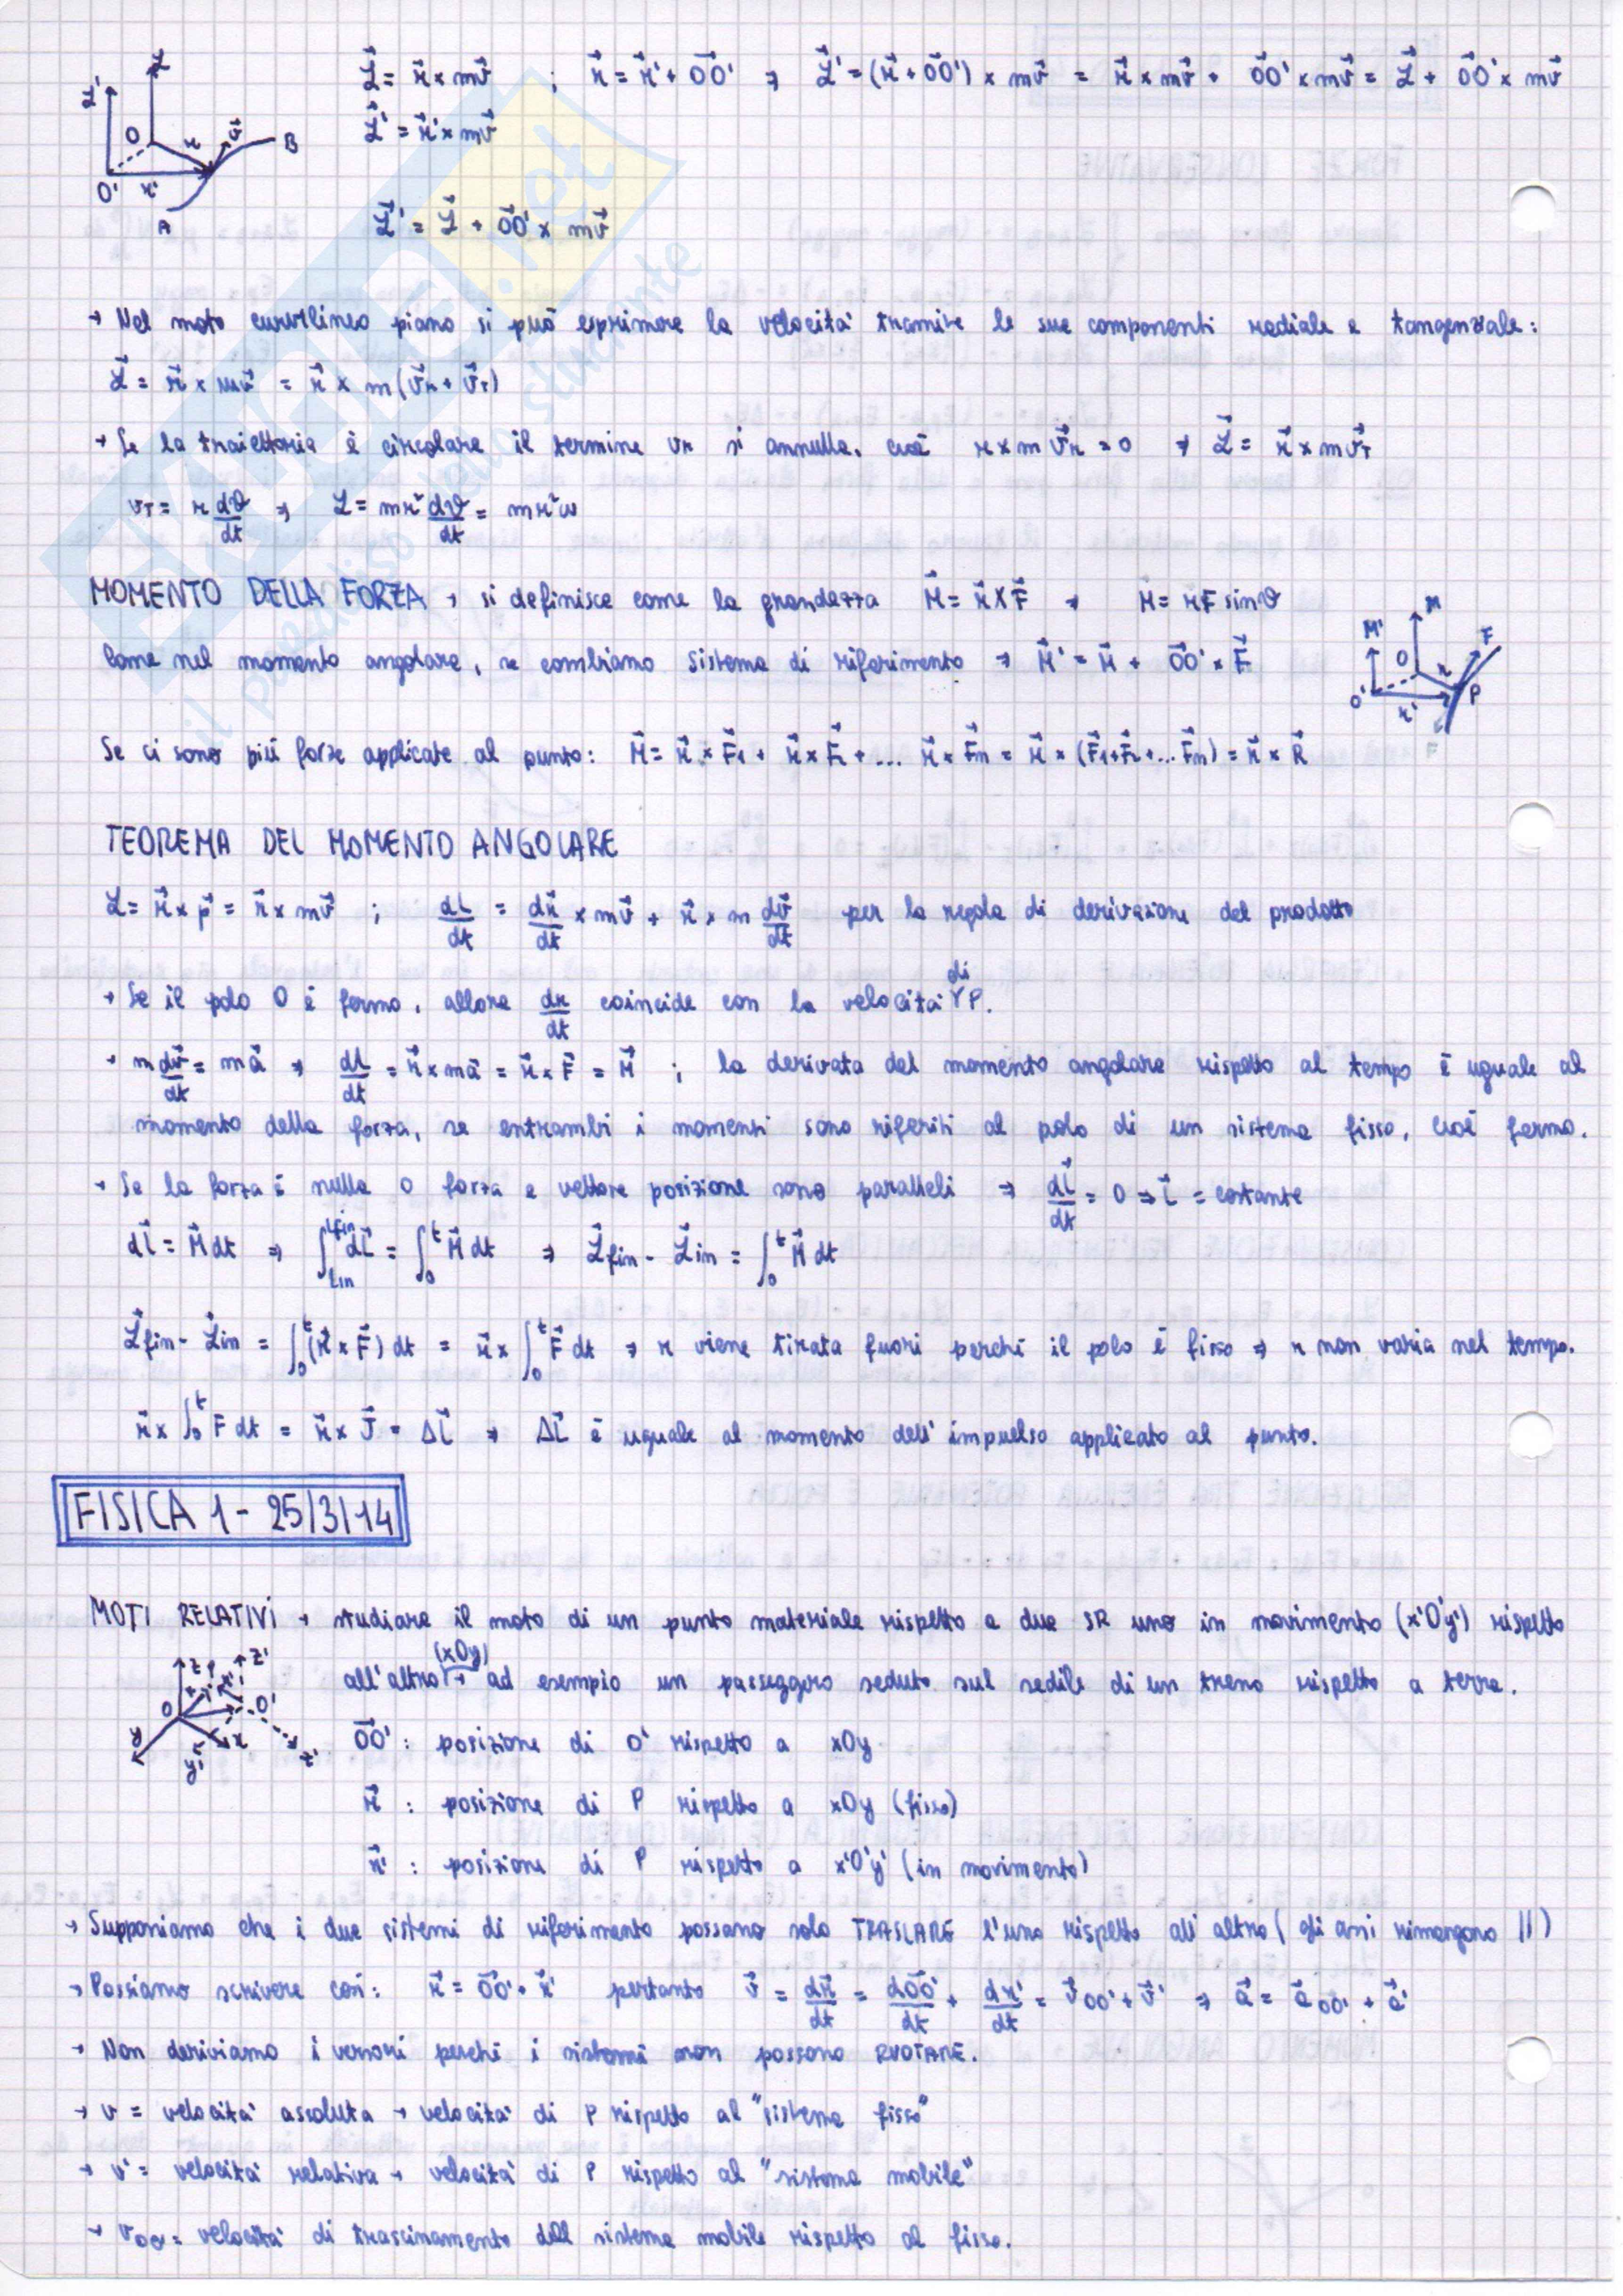 L⃗ = r⃗ × mv⃗ ; r⃗ = r⃗' + OO⃗' ⇒ L⃗' = (r⃗ + OO⃗') × mv⃗ = r⃗ × mv⃗ + OO⃗' × mv⃗ = L⃗ + OO⃗' × mv⃗
L⃗' = r⃗' × mv⃗
L⃗' = L⃗ + OO⃗' × mv⃗
L' L O O' r r' v⃗ A B
→ Nel moto curvilineo piano si può esprimere la velocità tramite le sue componenti radiale e tangenziale:
L⃗ = r⃗ × mv⃗ = r⃗ × m(v⃗r + v⃗T)
→ Se la traiettoria è circolare il termine vr si annulla, cioè r × m v⃗r = 0 ⇒ L⃗ = r⃗ × mv⃗T
vT = r dϑ/dt ⇒ L = mr² dϑ/dt = mr²ω
MOMENTO DELLA FORZA → si definisce come la grandezza M⃗ = r⃗ × F⃗ ⇒ M = rF sinϑ
Come nel momento angolare, se cambiamo sistema di riferimento ⇒ M⃗' = M⃗ + OO⃗' × F⃗
M' M O O' r r' F P
Se ci sono più forze applicate al punto: M⃗ = r⃗ × F⃗1 + r⃗ × F⃗2 + ... r⃗ × F⃗n = r⃗ × (F⃗1+F⃗2+...F⃗n) = r⃗ × R⃗
TEOREMA DEL MOMENTO ANGOLARE
L = r⃗ × p⃗ = r⃗ × mv⃗ ; dL/dt = dr⃗/dt × mv⃗ + r⃗ × m dv⃗/dt per la regola di derivazione del prodotto
→ Se il polo O è fermo, allora dr/dt coincide con la velocità di P.
→ m dv⃗/dt = ma⃗ ⇒ dL/dt = r⃗ × ma⃗ = r⃗ × F⃗ = M⃗ ; la derivata del momento angolare rispetto al tempo è uguale al
momento della forza, se entrambi i momenti sono riferiti al polo di un sistema fisso, cioè fermo.
→ Se la forza è nulla o forza e vettore posizione sono paralleli ⇒ dL⃗/dt = 0 ⇒ L⃗ = costante
dL⃗ = M⃗ dt ⇒ ∫Lin Lfin dL⃗ = ∫0 t M⃗ dt ⇒ L⃗fin - L⃗in = ∫0 t M⃗ dt
L⃗fin - L⃗in = ∫0 t (r⃗ × F⃗) dt = r⃗ × ∫0 t F⃗ dt ⇒ r viene tirata fuori perché il polo è fisso ⇒ r non varia nel tempo.
r⃗ × ∫0 t F dt = r⃗ × J⃗ = ΔL⃗ ⇒ ΔL⃗ è uguale al momento dell'impuelso applicato al punto.
FISICA 1 - 25/3/14
MOTI RELATIVI → studiare il moto di un punto materiale rispetto a due SR uno in movimento (x'O'y') rispetto
all'altro (xOy) → ad esempio un passeggero seduto sul sedile di un treno rispetto a terra.
OO⃗' : posizione di O' rispetto a xOy
r⃗ : posizione di P rispetto a xOy (fisso)
r⃗' : posizione di P rispetto a x'O'y' (in movimento)
→ Supponiamo che i due sistemi di riferimento possano solo TRASLARE l'uno rispetto all'altro (gli assi rimangono //)
→ Possiamo scrivere così: r⃗ = OO⃗' + r⃗' pertanto v⃗ = dr⃗/dt = dOO⃗'/dt + dr⃗'/dt = v⃗OO' + v⃗' ⇒ a⃗ = a⃗OO' + a⃗'
→ Non deriviamo i versori perché i sistemi non possono RUOTARE.
→ v = velocità assoluta → velocità di P rispetto al "sistema fisso"
→ v' = velocità relativa → velocità di P rispetto al "sistema mobile"
→ vOO' = velocità di trascinamento del sistema mobile rispetto al fisso.
.net
il paradiso dello studente